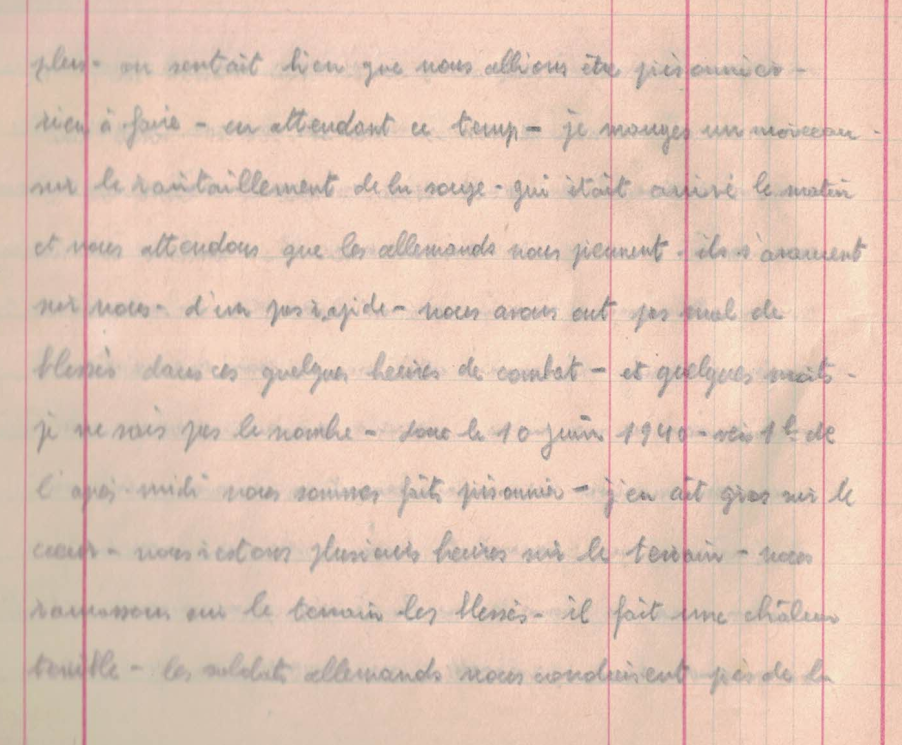 plus - on sentait bien que nous allions être prisonnier -
rien à faire - en attendant ce temp - je manges un morceau -
sur le ravitaillement de la rouge - qui était arrivé le matin
et nous attendons que les allemands nous prennent - ils s'avancent
sur nous - d'un pas rapide - nous avons eut pas mal de
blessés dans ces quelques heures de combat - et quelques morts -
je ne sais pas le nombre - donc le 10 juin 1940 - vers 1h de
l'après-midi nous sommes faits prisonnier - j'en ait gros sur le
cœur - nous restons plusieurs heures sur le terrain - nous
ramassons sur le terrain les blessés - il fait une châleur
terrible - les soldats allemands nous conduisent près de la